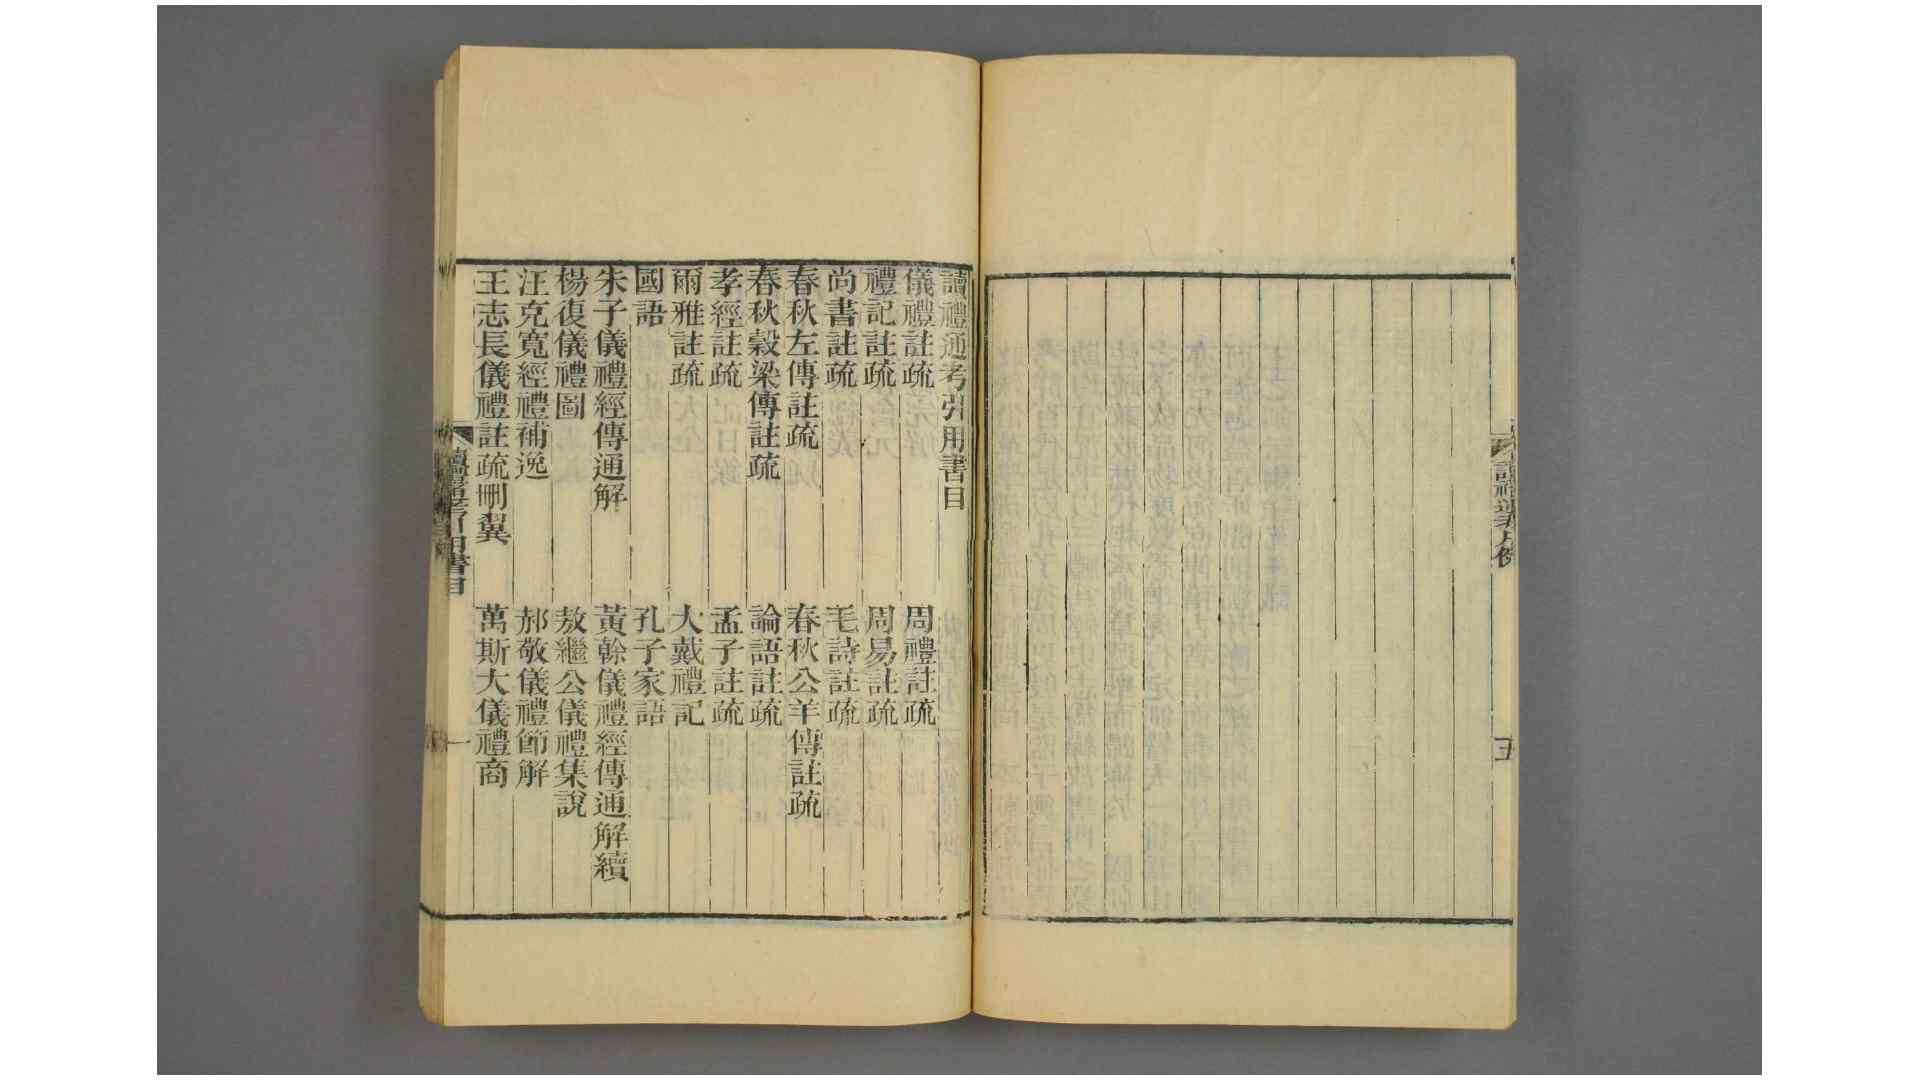 讀禮通考引用書目
儀禮註疏　周禮註疏
禮記註疏　周易註疏
尚書註疏　毛詩註疏
春秋左傳註疏　春秋公羊傳註疏
春秋穀梁傳註疏　論語註疏
孝經註疏　孟子註疏
爾雅註疏　大戴禮記
國語　孔子家語
朱子儀禮經傳通解　黃榦儀禮經傳通解續
楊復儀禮圖　敖繼公儀禮集說
汪克寬經禮補逸　郝敬儀禮節解
王志長儀禮註疏刪翼　萬斯大儀禮商
讀禮通考引用書目　一